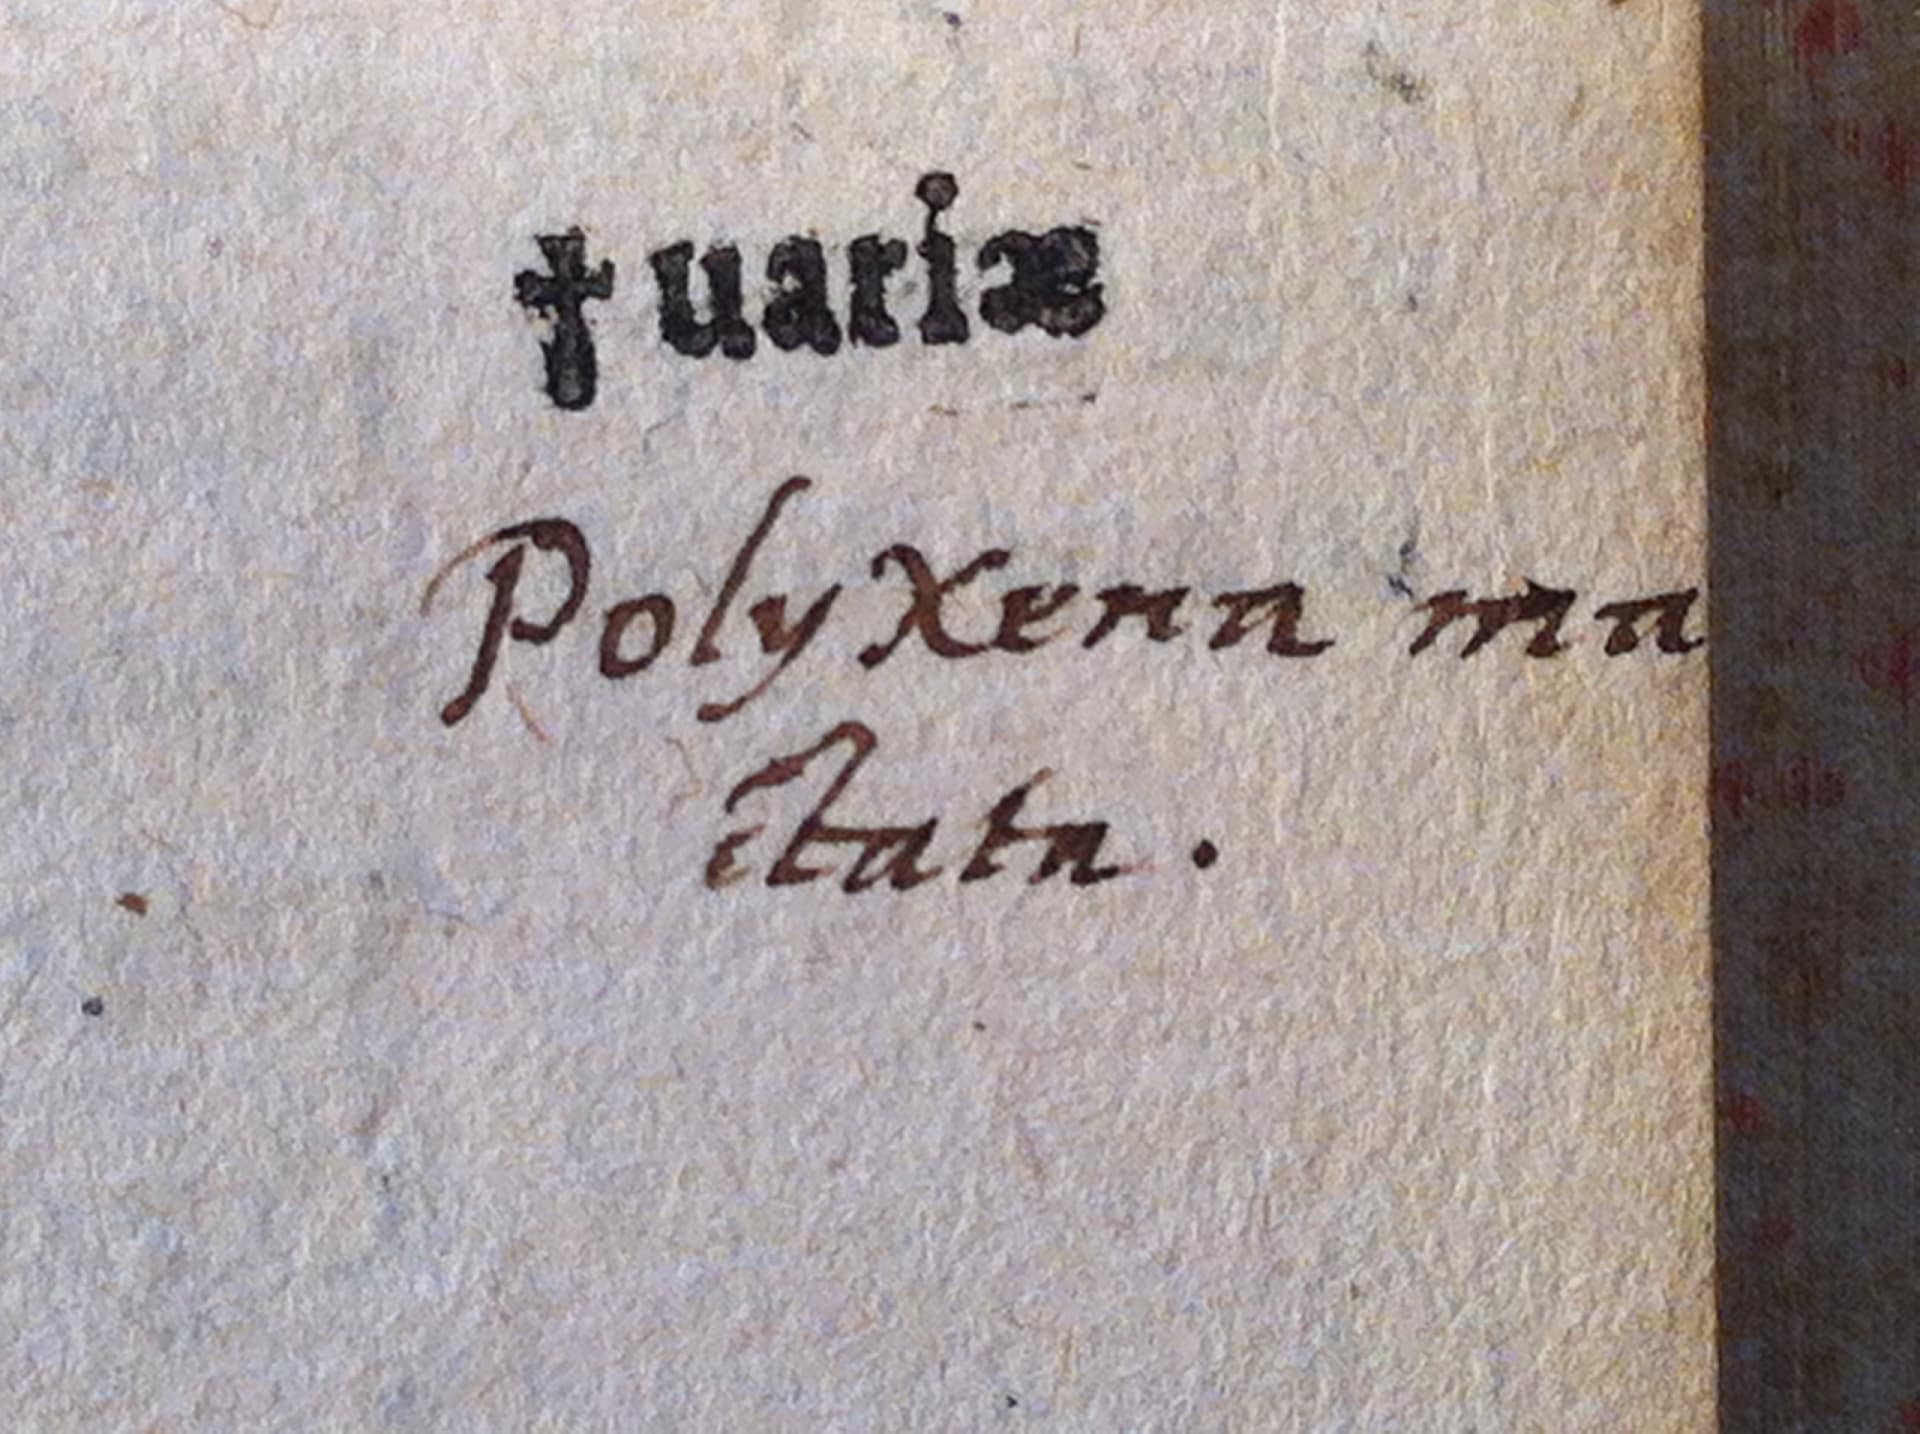 † uariæ
PolyXena ma
ctata .